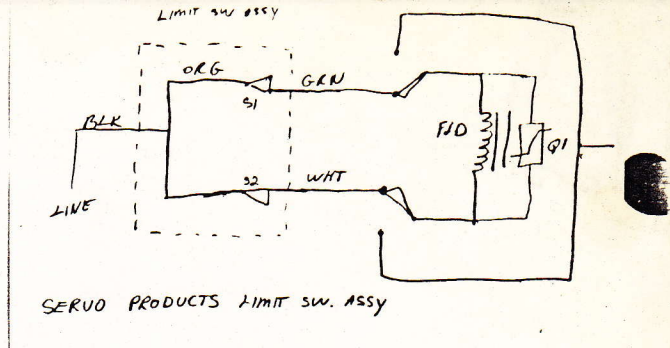 LIMIT SW ASSY
ORG
GRN
S1
BLK
FLD
Q1
S2
WHT
LINE
SERVO PRODUCTS LIMIT SW. ASSY